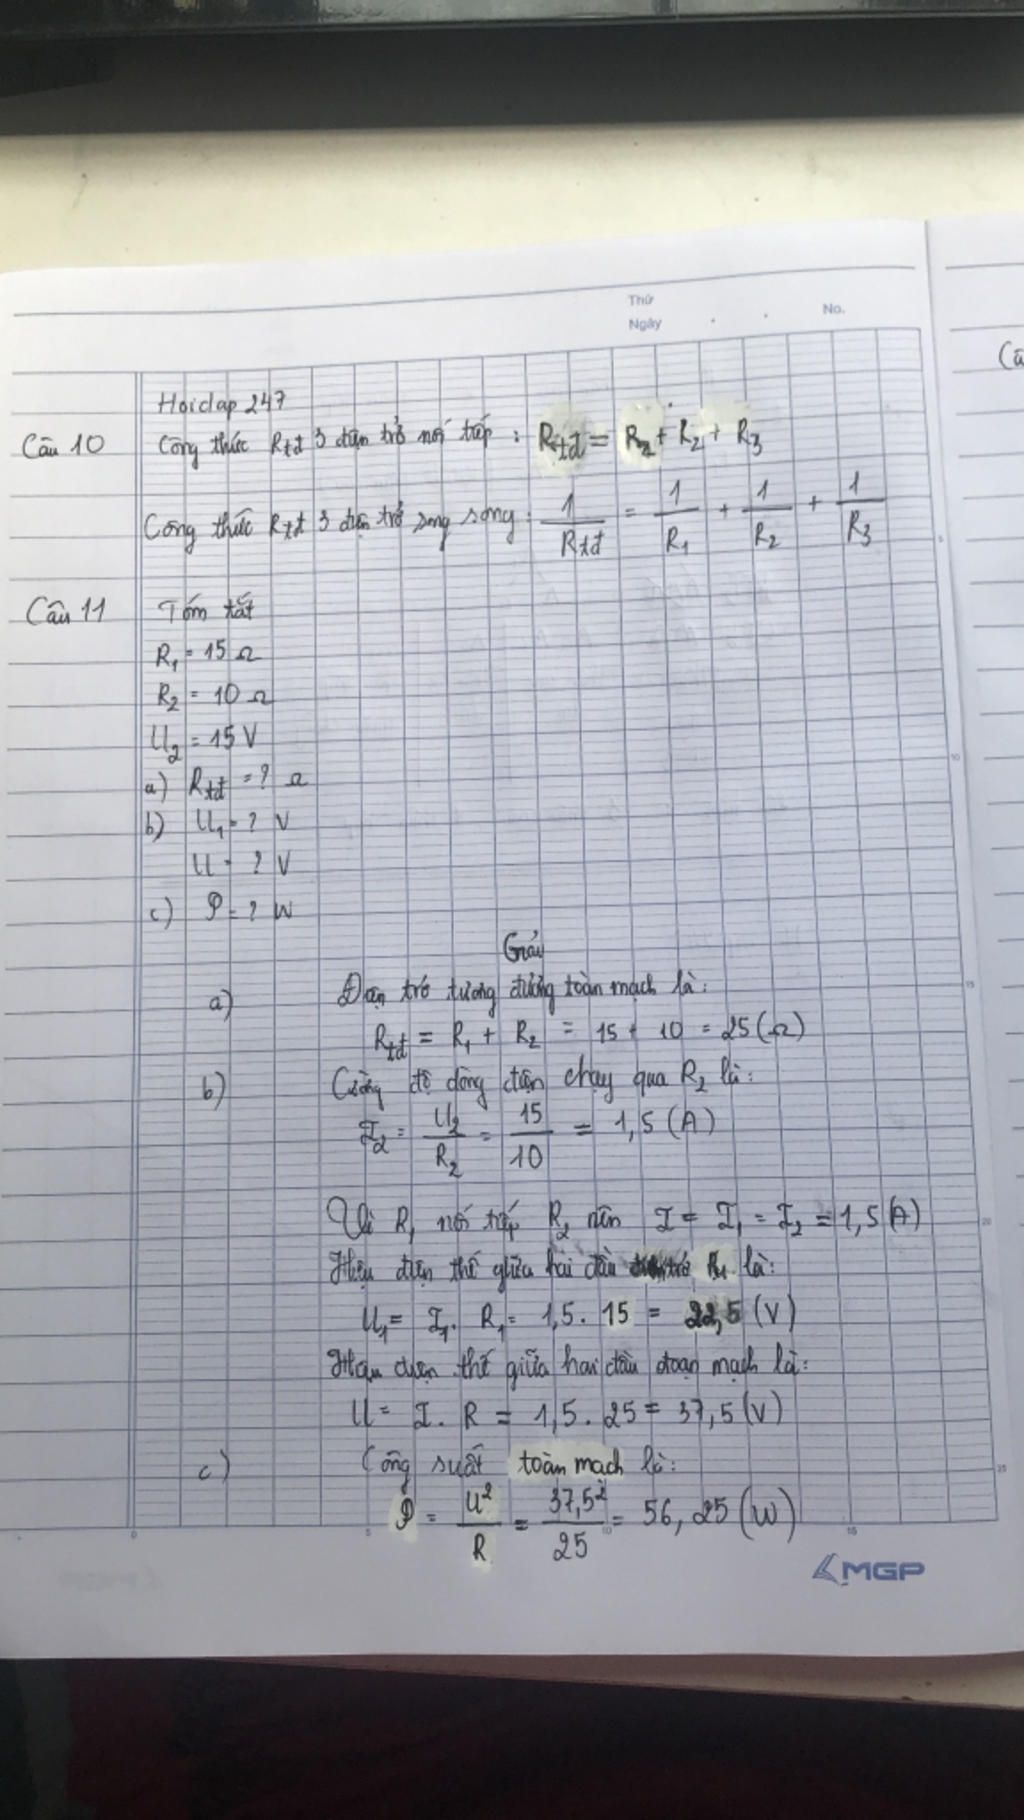 Thứ
Ngày . . No.
Hoidap 247
Câu 10 Công thức Rtđ 3 điện trở nối tiếp : Rtđ = R1 + R2 + R3
Công thức Rtđ 3 điện trở song song : 1/Rtđ = 1/R1 + 1/R2 + 1/R3
Câu 11 Tóm tắt
R1 = 15 Ω
R2 = 10 Ω
U2 = 15 V
a) Rtđ = ? Ω
b) U1 = ? V
U = ? V
c) P = ? W
Giải
a) Điện trở tương đương toàn mạch là:
Rtđ = R1 + R2 = 15 + 10 = 25 (Ω)
b) Cường độ dòng điện chạy qua R2 là:
I2 = U2/R2 = 15/10 = 1,5 (A)
Vì R1 nối tiếp R2 nên I = I1 = I2 = 1,5 (A)
Hiệu điện thế giữa hai đầu R1 là:
U1 = I1. R1 = 1,5. 15 = 22,5 (V)
Hiệu điện thế giữa hai đầu đoạn mạch là:
U = I. R = 1,5. 25 = 37,5 (V)
c) Công suất toàn mạch là:
P = U²/R = 37,5²/25 = 56,25 (W)
0 5 10 15
MGP
Câ
5
10
15
20
25